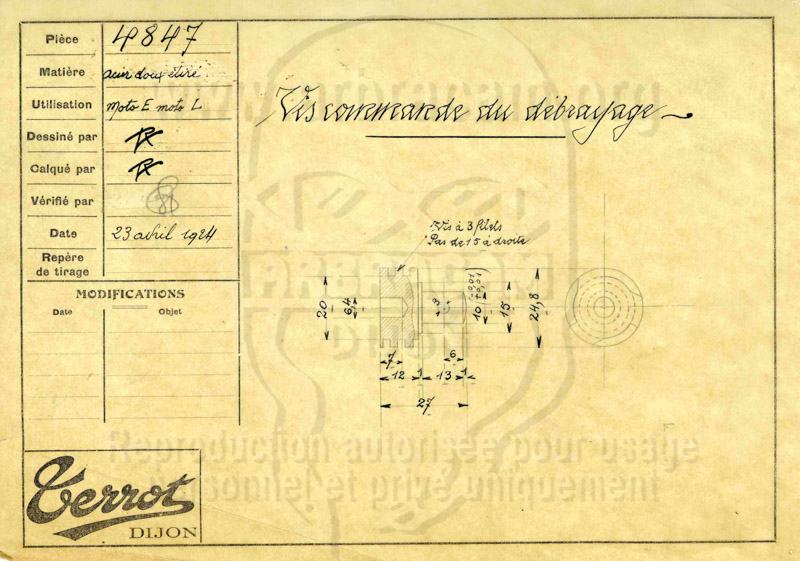 Pièce 4847
Matière acier doux étiré
Utilisation Moto E moto L
Dessiné par
Calqué par
Vérifié par
Date 23 avril 1924
Repère
de tirage
MODIFICATIONS
Date Objet
Vis commande du débrayage
Vis à 3 filets
Pas de 15 à droite
20
6,4
3
10
15
24,8
7
6
12
1
13
1
27
Terrot
DIJON
ARBRACAN
DIJON
Reproduction autorisée pour usage
personnel et privé uniquement